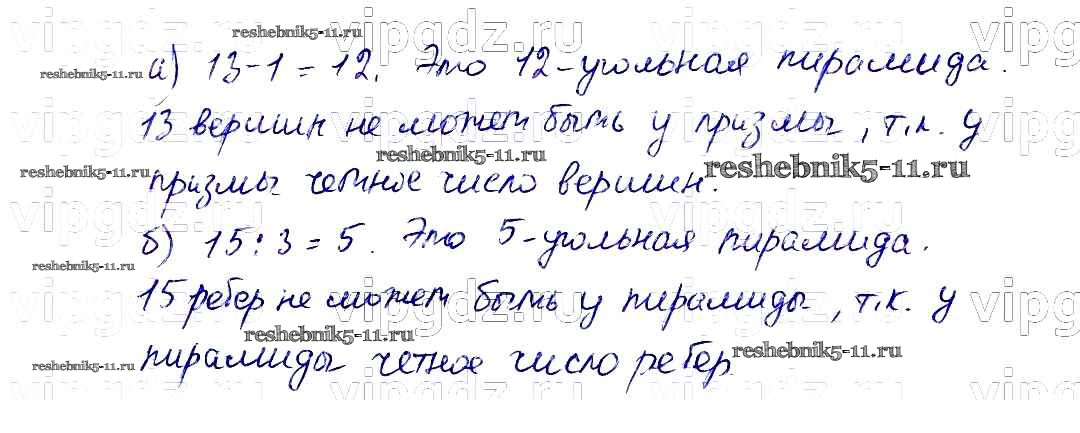 а) 13-1=12. Это 12-угольная пирамида.
13 вершин не может быть у призмы, т.к. у
призмы четное число вершин.
б) 15:3=5. Это 5-угольная пирамида.
15 ребер не может быть у пирамиды, т.к. у
пирамиды четное число ребер
reshebnik5-11.ru
reshebnik5-11.ru
reshebnik5-11.ru
reshebnik5-11.ru
reshebnik5-11.ru
reshebnik5-11.ru
reshebnik5-11.ru
reshebnik5-11.ru
reshebnik5-11.ru
vipgdz.ru
vipgdz.ru
vipgdz.ru
vipgdz.ru
vipgdz.ru